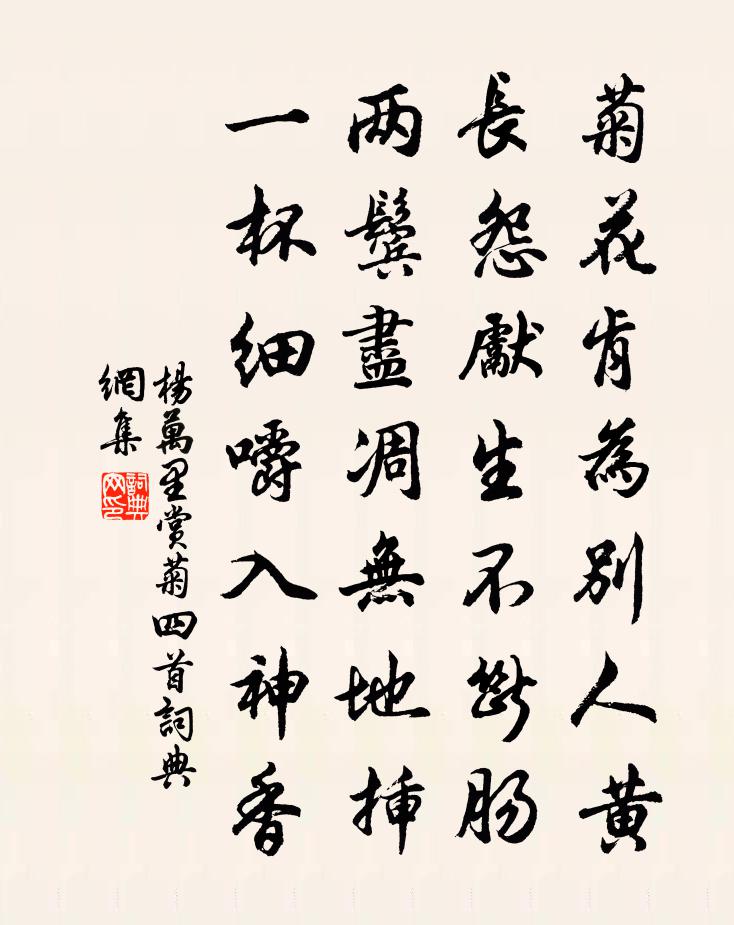 菊花肯為別人黃
長怨獻生不斷腸
两鬢盡凋無地挿
一杯細嚼入神香
楊萬里賞菊四首詞典
網集
詞典
网印